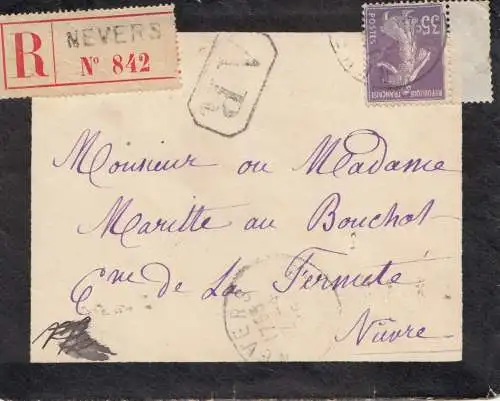 R NEVERS
Nº 842
AR
35c
POSTES
REPUBLIQUE FRANÇAISE
Monsieur ou Madame
Maritte au Bouchot
Cne de La Fermeté
Nièvre
NEVERS